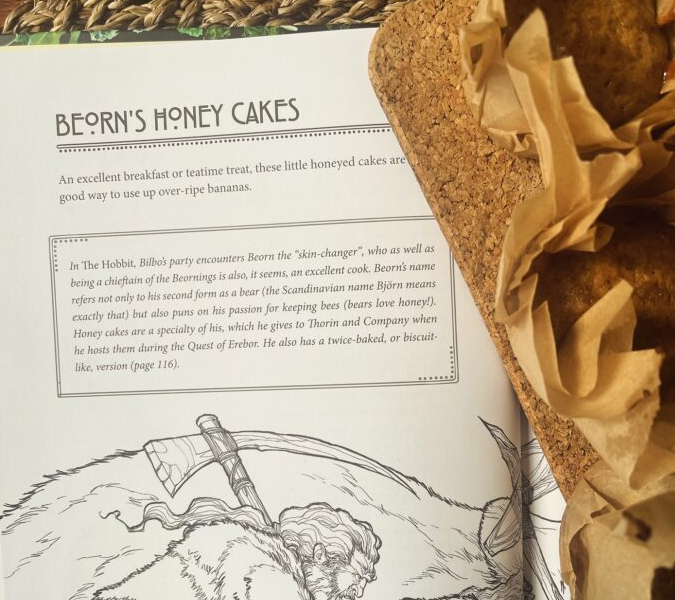 BEORN'S HONEY CAKES
An excellent breakfast or teatime treat, these little honeyed cakes are
good way to use up over-ripe bananas.
In The Hobbit, Bilbo's party encounters Beorn the "skin-changer", who as well as
being a chieftain of the Beornings is also, it seems, an excellent cook. Beorn's name
refers not only to his second form as a bear (the Scandinavian name Björn means
exactly that) but also puns on his passion for keeping bees (bears love honey!).
Honey cakes are a specialty of his, which he gives to Thorin and Company when
he hosts them during the Quest of Erebor. He also has a twice-baked, or biscuit-
like, version (page 116).